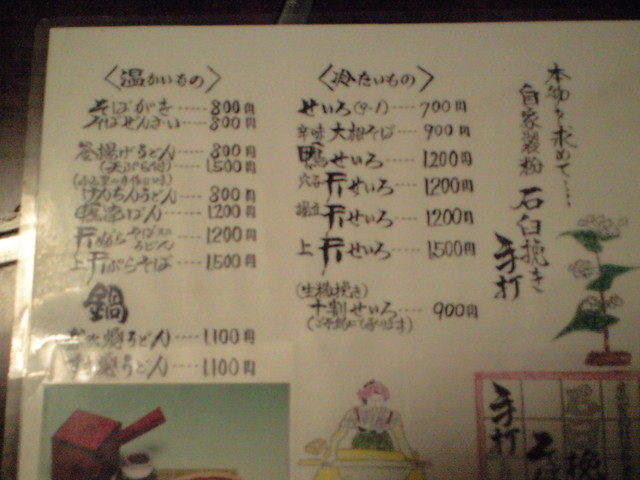 本物を求めて……
自家製粉
石臼挽き
手打
〈冷たいもの〉
せいろ(9-1)---- 700円
辛味大根そば---- 900円
鴨せいろ---- 1200円
穴子天せいろ---- 1200円
天せいろ---- 1200円
上天せいろ---- 1500円
十割せいろ---- 900円
(ご予約にて承ります)
〈温かいもの〉
そばがき---- 800円
そばぜんざい---- 800円
釜揚げうどん---- 800円
(天ぷら付)---- 1,500円
けんちんうどん---- 800円
1200円
天ぷらそば又はうどん---- 1200円
上天ぷらそば---- 1,500円
鍋
うどん---- 1,100円
うどん---- 1,100円
手打
石臼挽
そば